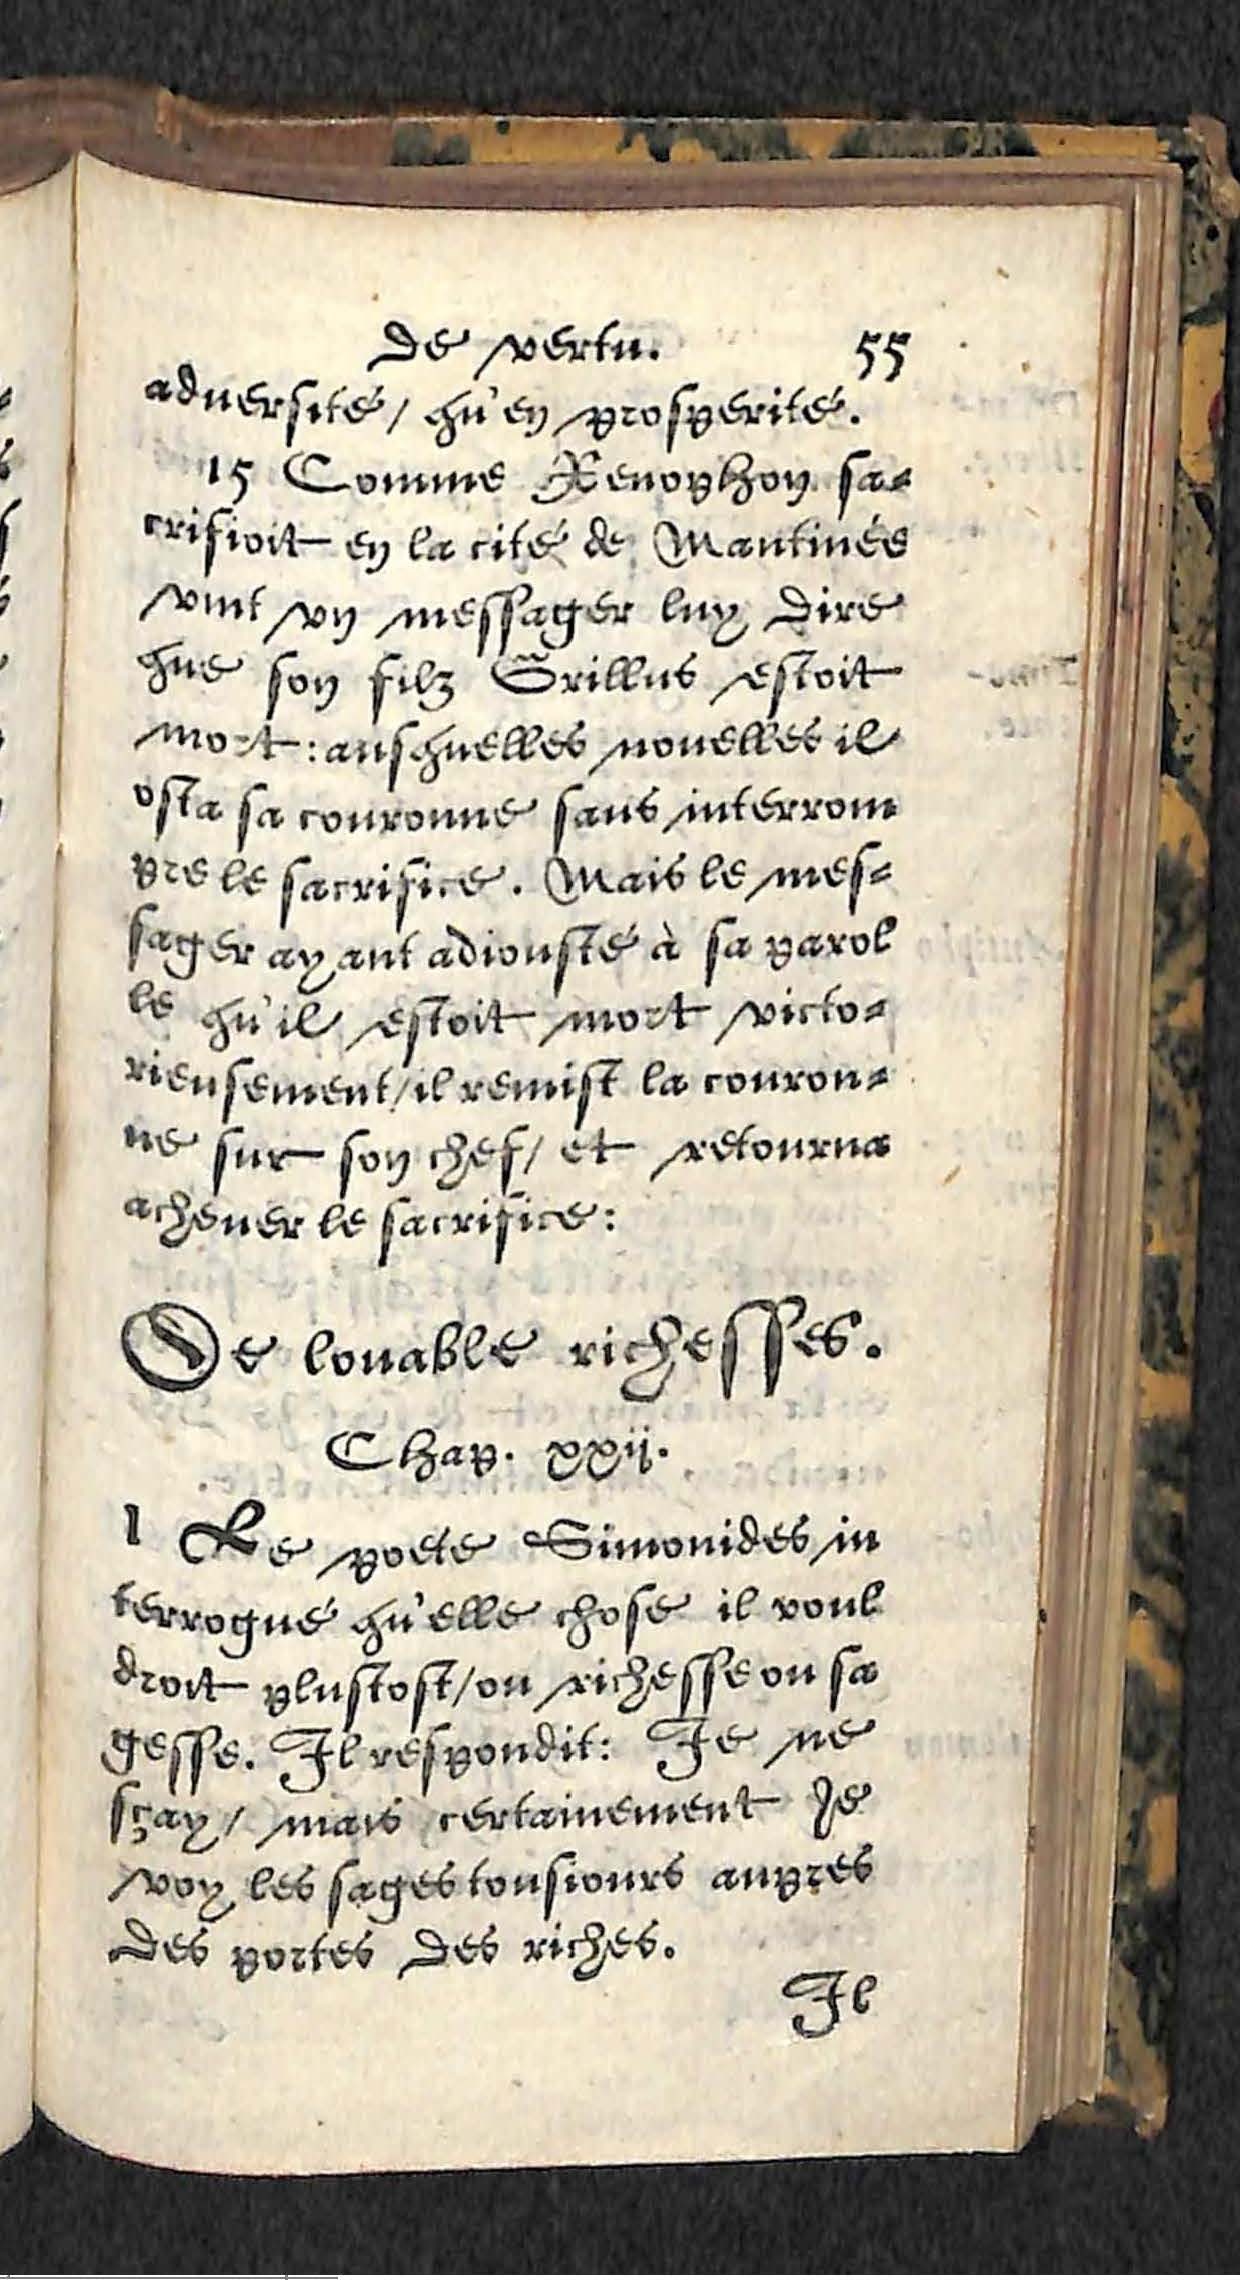 De vertu. 55
aduersité/ qu'en prosperité.
15 Comme Xenophon sa-
crifioit en la cité de Mantinée
vint vn messager luy dire
que son filz Grillus estoit
mort: ausquelles nouuelles il
osta sa couronne sans interrom
pre le sacrifice. Mais le mes-
sager ayant adiousté à sa parol
le qu'il estoit mort victo-
rieusement/ il remist la couron-
ne sur son chef/ et retourna
acheuer le sacrifice:
De louable richesses.
Chap. xxij.
1 Le poete Simonides in
terrogué qu'elle chose il voul
droit plustost/ ou richesse ou sa
gesse. Il respondit: Je ne
sçay/ mais certainement Je
voy les sages tousiours aupres
des portes des riches.
Il